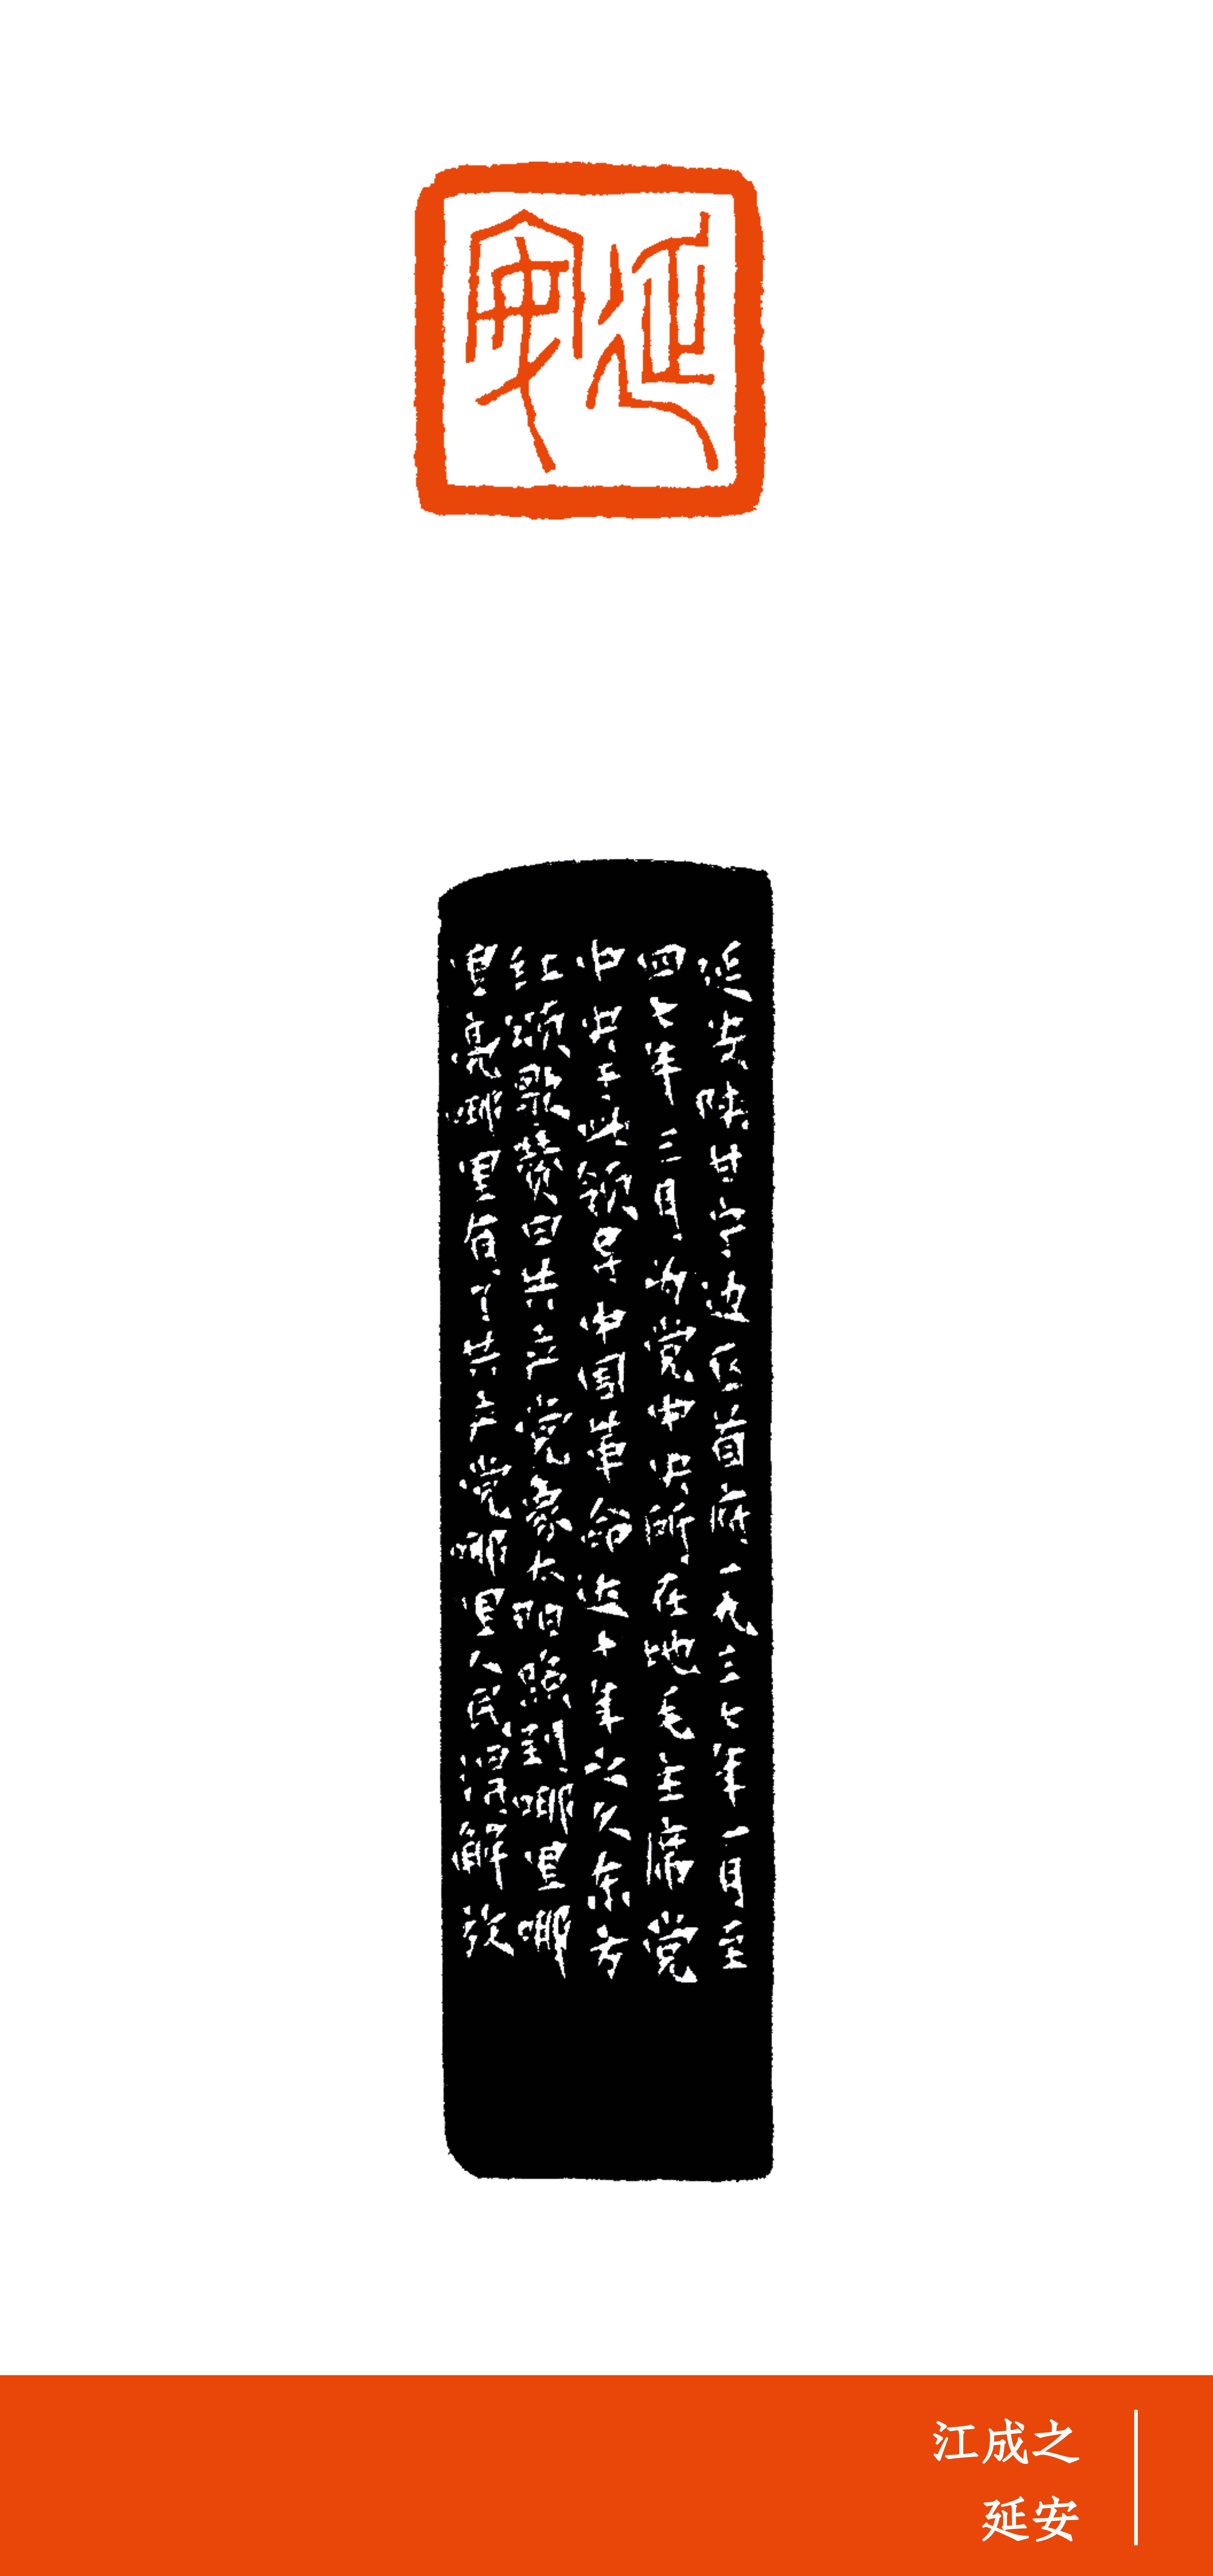 延安
延安陕甘宁边区首府一九三七年一月至
四七年三月为党中央所在地毛主席党
中央于此领导中国革命近十年之久东方
红颂歌赞曰共产党象太阳照到哪里哪
里亮哪里有了共产党哪里人民得解放
江成之
延安